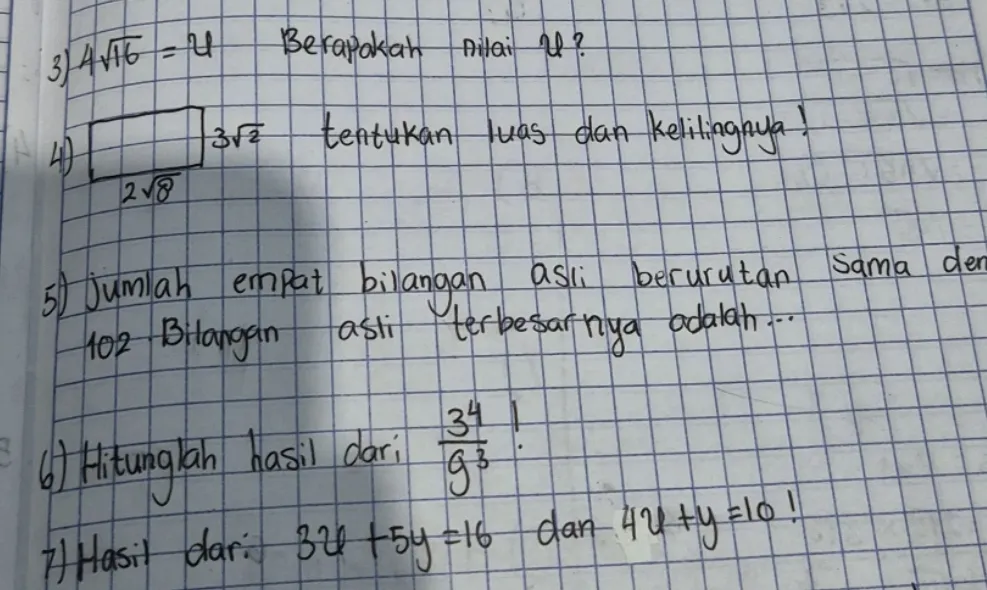 3) 4√16 = x Berapakah nilai x?
4) 3√2 tentukan luas dan kelilingnya!
2√8
5) Jumlah empat bilangan asli berurutan sama den
102 Bilangan asli terbesarnya adalah...
6) Hitunglah hasil dari 3⁴/9³ !
7) Hasil dari 3x + 5y = 16 dan 4x + y = 10!